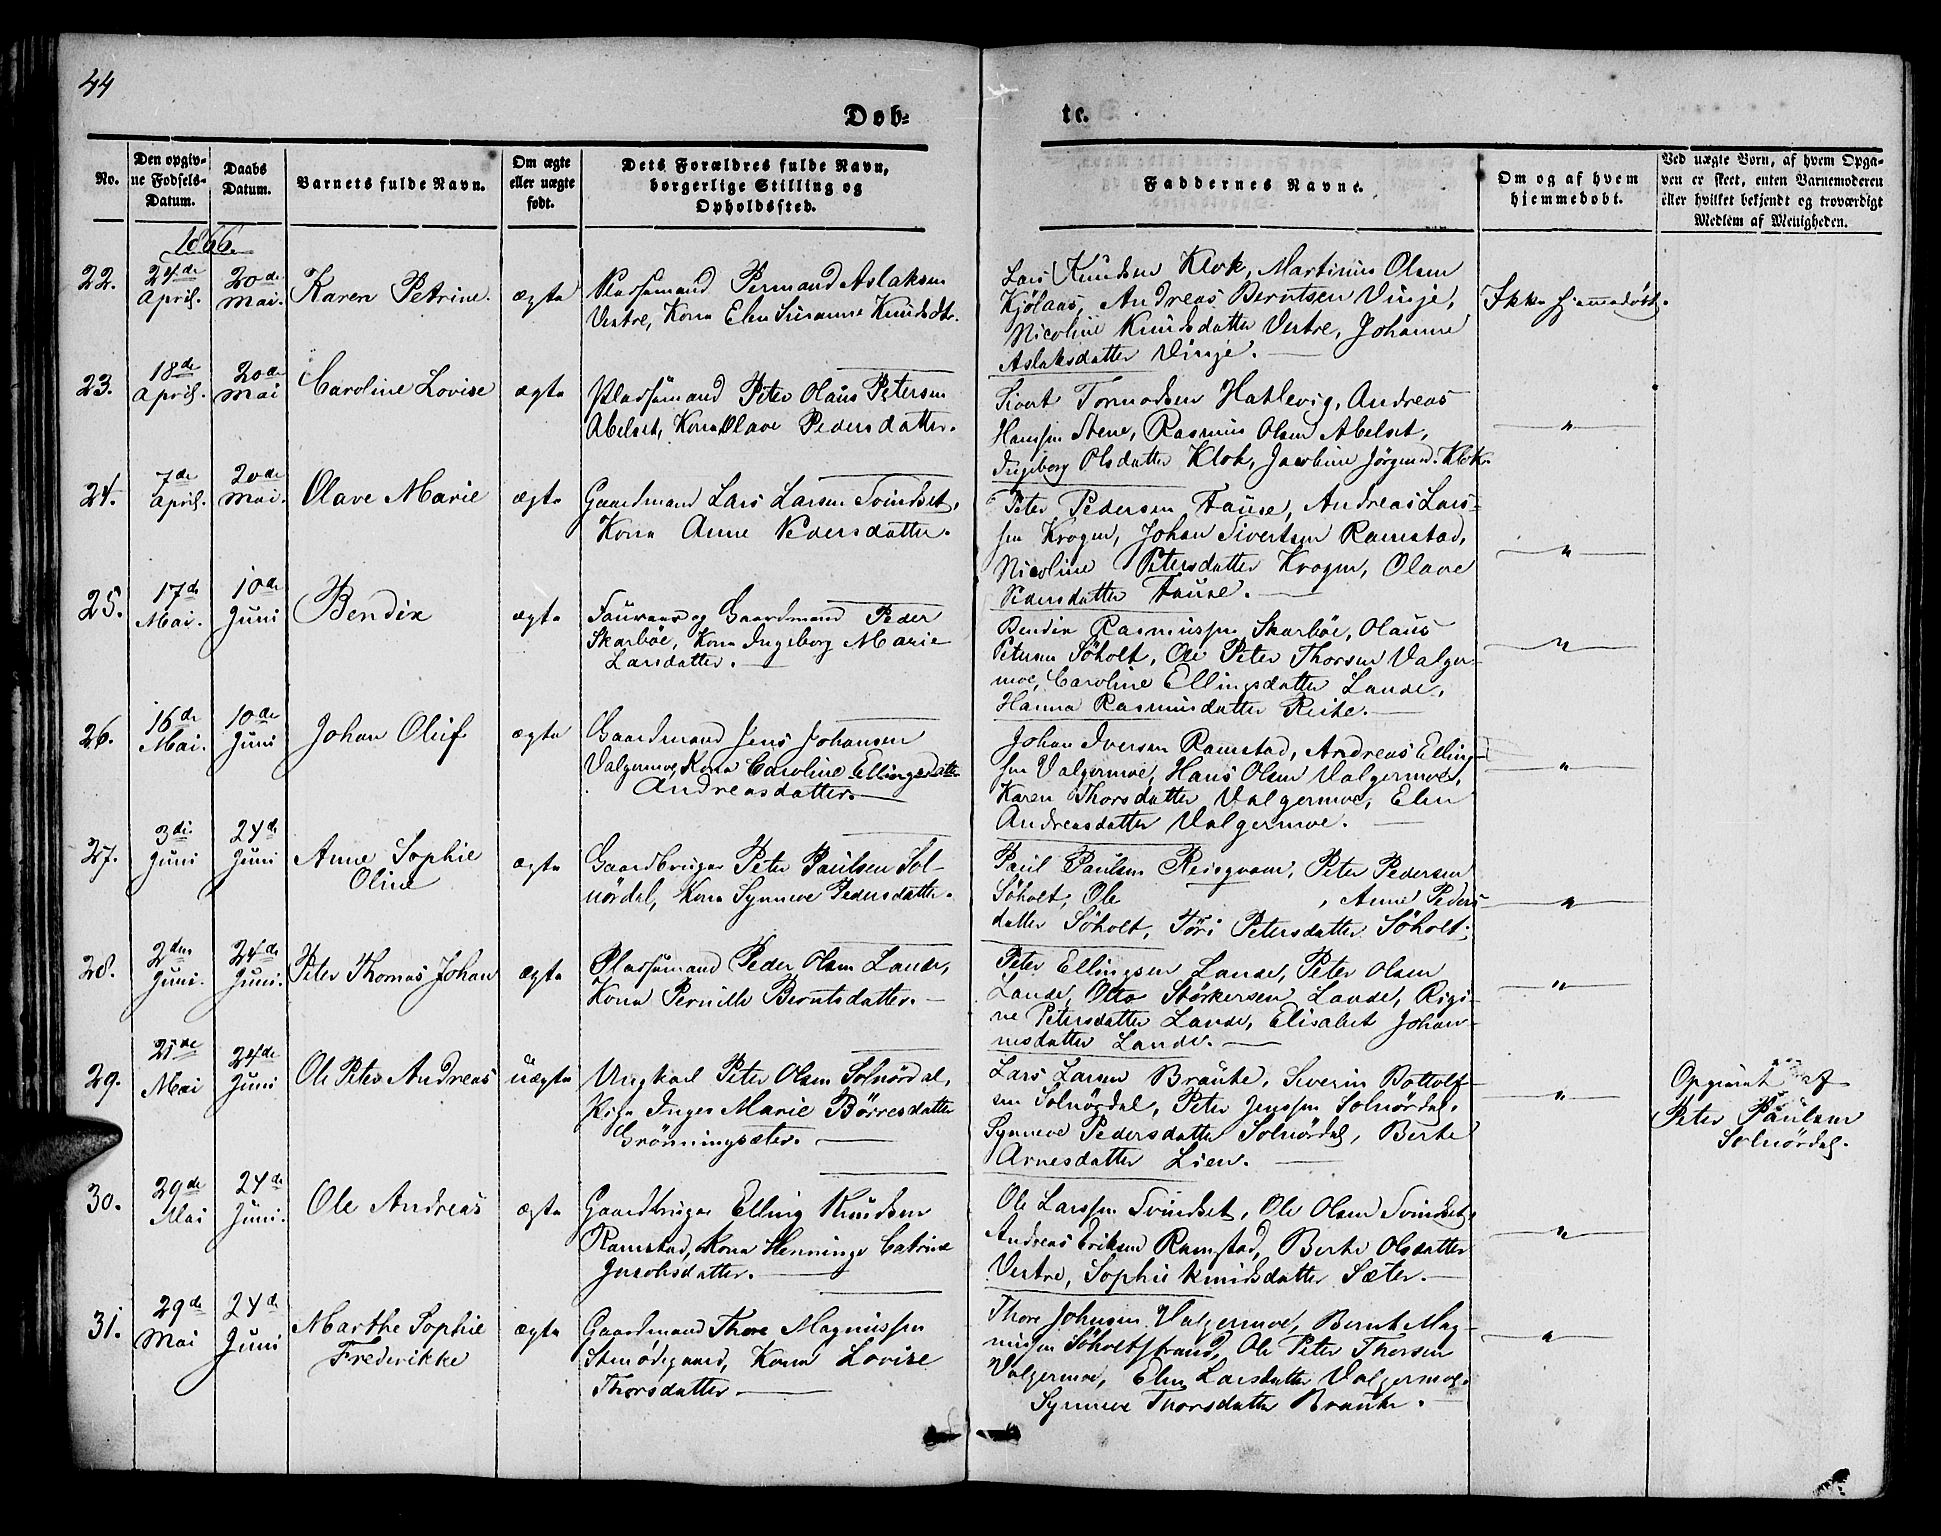 44
Døb-
te.
No.
Den opgiv-
ne Fødsels-
Datum.
Daabs
Datum.
Barnets fulde Navn.
Om ægte
eller uægte
født.
Dets Forældres fulde Navn,
borgerlige Stilling og
Opholdssted.
Faddernes Navne.
Om og af hvem
hjemmedøbt.
Ved uægte Børn, af hvem Opga-
ven er skeet, enten Barnemoderen
eller hvilket bekjendt og troværdigt
Medlem af Menigheden.
1866.
22.
24de
April.
20de
Mai.
Karen Petrine.
ægte
Pladsemand Permand Aslaksen
Vestre, Kone Elen Susanne Knudsdtr.
Lars Knudsen Klok, Martinus Olsen
Kjølaas, Andreas Berntsen Vinje,
Nicoline Knudsdatter Vestre, Johanne
Aslaksdatter Vinje.
Ikke hjemmedøbt.
23.
18de
April.
20de
Mai
Caroline Lovise
ægte
Pladsemand Peter Olaus Petersen
Abelset, Kone Olave Pedersdatter.
Sivert Tormodsen Hatlevig, Andreas
Hansen Stene, Rasmus Olsen Abelset,
Ingeborg Olsdatter Klok, Jacobine Jørgensd. Klok.
"
24.
7de
April.
20de
Mai.
Olave Marie
ægte
Gaardmand Lars Larsen Svindset,
Kone Anne Pedersdatter.
Peter Pedersen Fause, Andreas Lars-
sen Krogen, Johan Sivertsen Ramstad,
Nicoline Petersdatter Krogen, Olave
Pedersdatter Fause.
"
25.
17de
Mai.
10de
Juni
Bendix
ægte
og Gaardmand Peder
Skarbøe, Kone Ingeborg Marie
Larsdatter.
Bendix Rasmussen Skarbøe, Olaus
Petersen Søholt, Ole Peter Thorsen Valger-
moe, Caroline Ellingsdatter Lande,
Hanna Rasmusdatter Reite.
"
26.
16de
Mai.
10de
Juni
Johan Oluf
ægte
Gaardmand Jens Johansen
Valgermoe, Kone Caroline Ellingsdatter
Andreasdatter.
Johan Iversen Ramstad, Andreas Elling-
sen Valgermoe, Hans Olsen Valgermoe,
Karen Thorsdatter Valgermoe, Elen
Andreasdatter Valgermoe.
"
27.
3di
Juni
24de
Juni
Anne Sophie
Oline
ægte
Gaardbruger Peter Paulsen Sol-
nördal, Kone Synneve Pedersdatter.
Paul Paulsen Reisqvam, Peter Pedersen
Søholt, Ole , Anne Peders-
datter Søholt, Töri Petersdatter Søholt.
"
28.
2den
Juni.
24de
Juni.
Peter Thomas Johan
ægte
Pladsemand Peder Olsen Lande,
Kone Pernille Berntsdatter.
Peter Ellingsen Lande, Peter Olsen
Lande, Otto Störkersen Lande, Rigi-
ne Petersdatter Lande, Elisabet Johan-
nesdatter Lande.
"
29.
Mai
24de
Juni
Ole Peter Andreas
uægte
Ungkarl Peter Olsen Solnördal,
Pige Inger Marie Börresdatter
Grönningsæter.
Lars Larsen Braute, Severin Bottolf-
sen Solnördal, Peter Jenssen Solnördal,
Synneve Pedersdatter Solnördal, Berte
Arnesdatter Lien.
"
Opgivet af
Peter Paulsen
Solnördal.
30.
29de
Mai
24de
Juni.
Ole Andreas
ægte
Gaardbruger Elling Knudsen
Ramstad, Kone Henninge Catrine
Jacobsdatter.
Ole Larssen Svindset, Ole Olsen Svindset,
Andreas Eriksen Ramstad, Berte Olsdatter
Vestre, Sophie Knudsdatter Sæter.
"
31.
29de
Mai
24de
Juni
Marthe Sophie
Frederikke
ægte
Gaardmand Thore Magnussen
Stenødegaard, Kone Lovise
Thorsdatter
Thore Johnsen Valgermoe, Bernt Mag-
nusen Søholtstrand, Ole Peter Thorsen
Valgermoe, Elen Larsdatter Valgermoe.
Synneve Thorsdatter Braute.
"